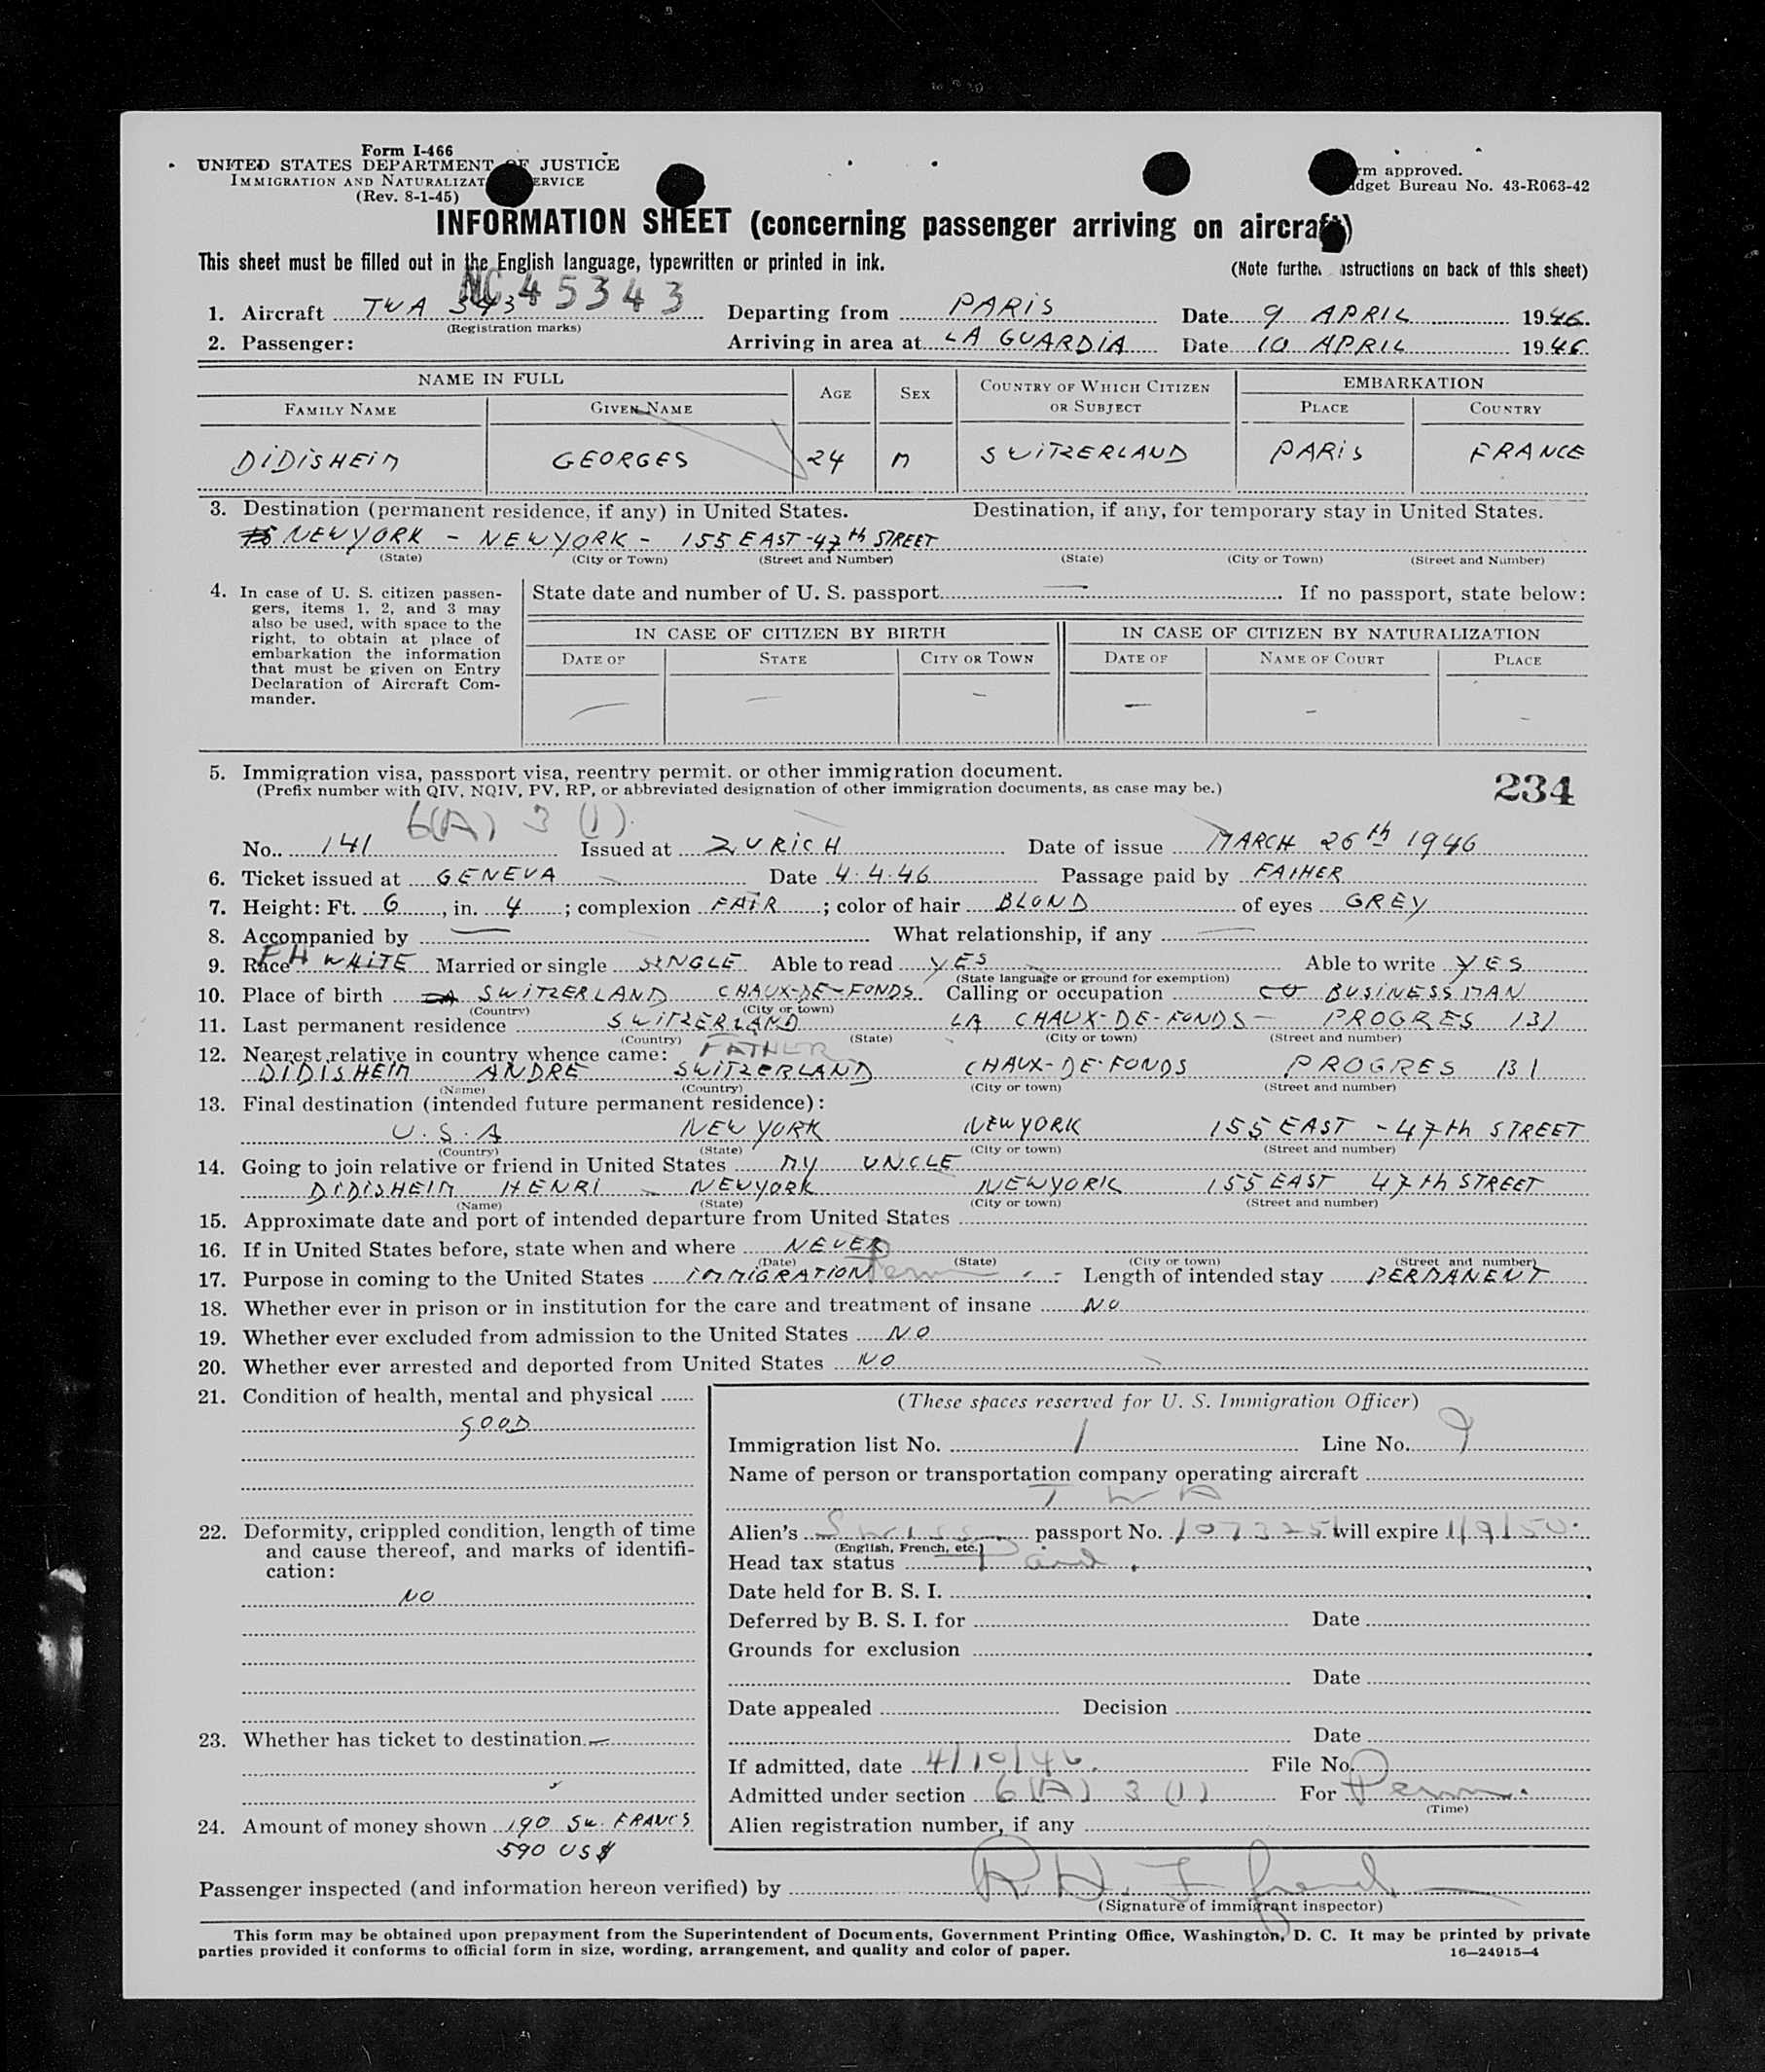 Form I-466
UNITED STATES DEPARTMENT OF JUSTICE
IMMIGRATION AND NATURALIZAT ERVICE
(Rev. 8-1-45)
rm approved.
dget Bureau No. 43-R063-42
INFORMATION SHEET (concerning passenger arriving on aircraft)
This sheet must be filled out in the English language, typewritten or printed in ink.
(Note further instructions on back of this sheet)
NC 45343
1. Aircraft TWA 343 Departing from PARIS Date 9 APRIL 1946.
(Registration marks)
2. Passenger: Arriving in area at LA GUARDIA Date 10 APRIL 1946
NAME IN FULL AGE SEX COUNTRY OF WHICH CITIZEN OR SUBJECT EMBARKATION
FAMILY NAME GIVEN NAME PLACE COUNTRY
DIDISHEIM GEORGES 24 M SWITZERLAND PARIS FRANCE
3. Destination (permanent residence, if any) in United States. Destination, if any, for temporary stay in United States.
NEWYORK - NEWYORK - 155 EAST-47th STREET
(State) (City or Town) (Street and Number) (State) (City or Town) (Street and Number)
4. In case of U. S. citizen passen-
gers, items 1, 2, and 3 may
also be used, with space to the
right, to obtain at place of
embarkation the information
that must be given on Entry
Declaration of Aircraft Com-
mander.
State date and number of U. S. passport — If no passport, state below:
IN CASE OF CITIZEN BY BIRTH IN CASE OF CITIZEN BY NATURALIZATION
DATE OF STATE CITY OR TOWN DATE OF NAME OF COURT PLACE
— — — — — —
5. Immigration visa, passport visa, reentry permit, or other immigration document.
(Prefix number with QIV, NQIV, PV, RP, or abbreviated designation of other immigration documents, as case may be.)
234
6(A) 3 (1).
No. 141 Issued at ZURICH Date of issue MARCH 26th 1946
6. Ticket issued at GENEVA Date 4.4.46 Passage paid by FATHER
7. Height: Ft. 6, in. 4; complexion FAIR; color of hair BLOND of eyes GREY
8. Accompanied by — What relationship, if any —
9. Race WHITE Married or single SINGLE Able to read YES Able to write YES
(State language or ground for exemption)
10. Place of birth SWITZERLAND CHAUX-DE-FONDS Calling or occupation BUSINESSMAN
(Country) (City or town)
11. Last permanent residence SWITZERLAND LA CHAUX-DE-FONDS - PROGRES 131
(Country) (State) (City or town) (Street and number)
12. Nearest relative in country whence came: FATHER
DIDISHEIM ANDRE SWITZERLAND CHAUX-DE-FONDS PROGRES 131
(Name) (Country) (City or town) (Street and number)
13. Final destination (intended future permanent residence):
U.S.A NEW YORK NEWYORK 155 EAST -47th STREET
(Country) (State) (City or town) (Street and number)
14. Going to join relative or friend in United States MY UNCLE
DIDISHEIM HENRI - NEWYORK NEWYORK 155 EAST 47th STREET
(Name) (State) (City or town) (Street and number)
15. Approximate date and port of intended departure from United States
16. If in United States before, state when and where NEVER
(Date) (State) (City or town) (Street and number)
17. Purpose in coming to the United States IMMIGRATION Perm Length of intended stay PERMANENT
18. Whether ever in prison or in institution for the care and treatment of insane NO
19. Whether ever excluded from admission to the United States NO
20. Whether ever arrested and deported from United States NO
21. Condition of health, mental and physical
GOOD
22. Deformity, crippled condition, length of time
and cause thereof, and marks of identifi-
cation:
NO
23. Whether has ticket to destination —
24. Amount of money shown 190 Sw. FRANCS
590 US $
(These spaces reserved for U. S. Immigration Officer)
Immigration list No. 1 Line No. 9
Name of person or transportation company operating aircraft
T W A
Alien's Swiss passport No. 1073251 will expire 1/9/50.
(English, French, etc.)
Head tax status Paid.
Date held for B. S. I.
Deferred by B. S. I. for Date
Grounds for exclusion
Date
Date appealed Decision
Date
If admitted, date 4/10/46. File No.
Admitted under section 6(A) 3 (1) For Perm.
(Time)
Alien registration number, if any
Passenger inspected (and information hereon verified) by
(Signature of immigrant inspector)
This form may be obtained upon prepayment from the Superintendent of Documents, Government Printing Office, Washington, D. C. It may be printed by private
parties provided it conforms to official form in size, wording, arrangement, and quality and color of paper.
16—24915-4